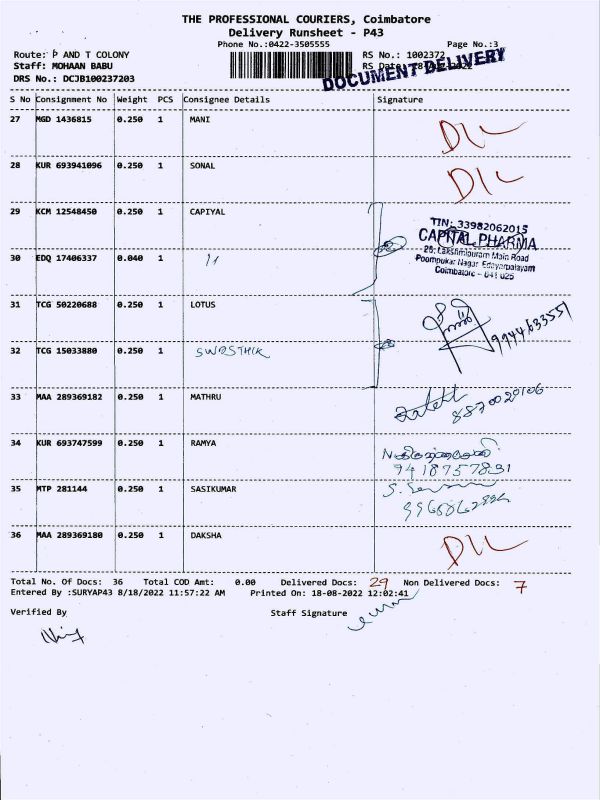 THE PROFESSIONAL COURIERS, Coimbatore
Delivery Runsheet - P43
Phone No.:0422-3505555 Page No.:3
Route: P AND T COLONY RS No.: 1002372
Staff: MOHAAN BABU RS Date:
DOCUMENT DELIVERY
DRS No.: DCJB100237203
S No Consignment No Weight PCS Consignee Details Signature
27 MGD 1436815 0.250 1 MANI DIL
28 KUR 693941096 0.250 1 SONAL DIL
29 KCM 12548450 0.250 1 CAPIYAL
TIN: 33982062015
CAPITAL PHARMA
26, Lakshmipuram Main Road
Poompukar Nagar, Edayarpalayam
Coimbatore - 641 025
30 EDQ 17406337 0.040 1 11
31 TCG 50220688 0.250 1 LOTUS 9944633551
32 TCG 15033880 0.250 1 SWASTHIK
33 MAA 289369182 0.250 1 MATHRU 8870020106
34 KUR 693747599 0.250 1 RAMYA
9418757831
35 MTP 281144 0.250 1 SASIKUMAR
36 MAA 289369180 0.250 1 DAKSHA DIL
Total No. Of Docs: 36 Total COD Amt: 0.00 Delivered Docs: 29 Non Delivered Docs: 7
Entered By :SURYAP43 8/18/2022 11:57:22 AM Printed On: 18-08-2022 12:02:41
Verified By Staff Signature